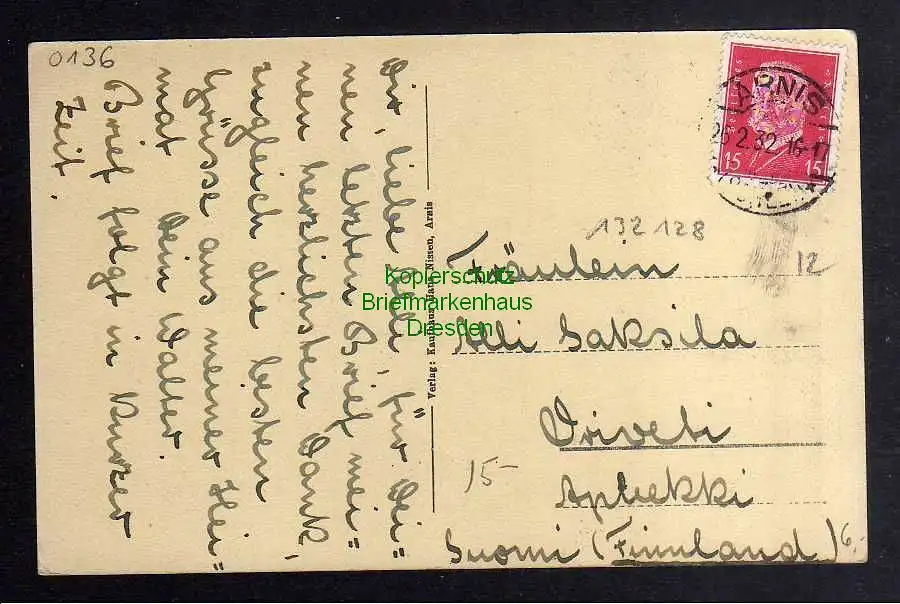 0136
Dir, liebe Alli, für Dei=
nen letzten Brief mei=
nen herzlichsten Dank,
zugleich die besten
Grüsse aus meiner Hei=
mat Dein Walter.
Brief folgt in kurzer
Zeit.
Verlag: Kaufhaus Max Nissen, Arnis
ARNIS
25.2.32.16-17
15 15
132 128
12
Fräulein
Alli Saksila
Orivesi
Aptekki
Suomi (Finnland)
15-
6,-
Kopierschutz
Briefmarkenhaus
Dresden